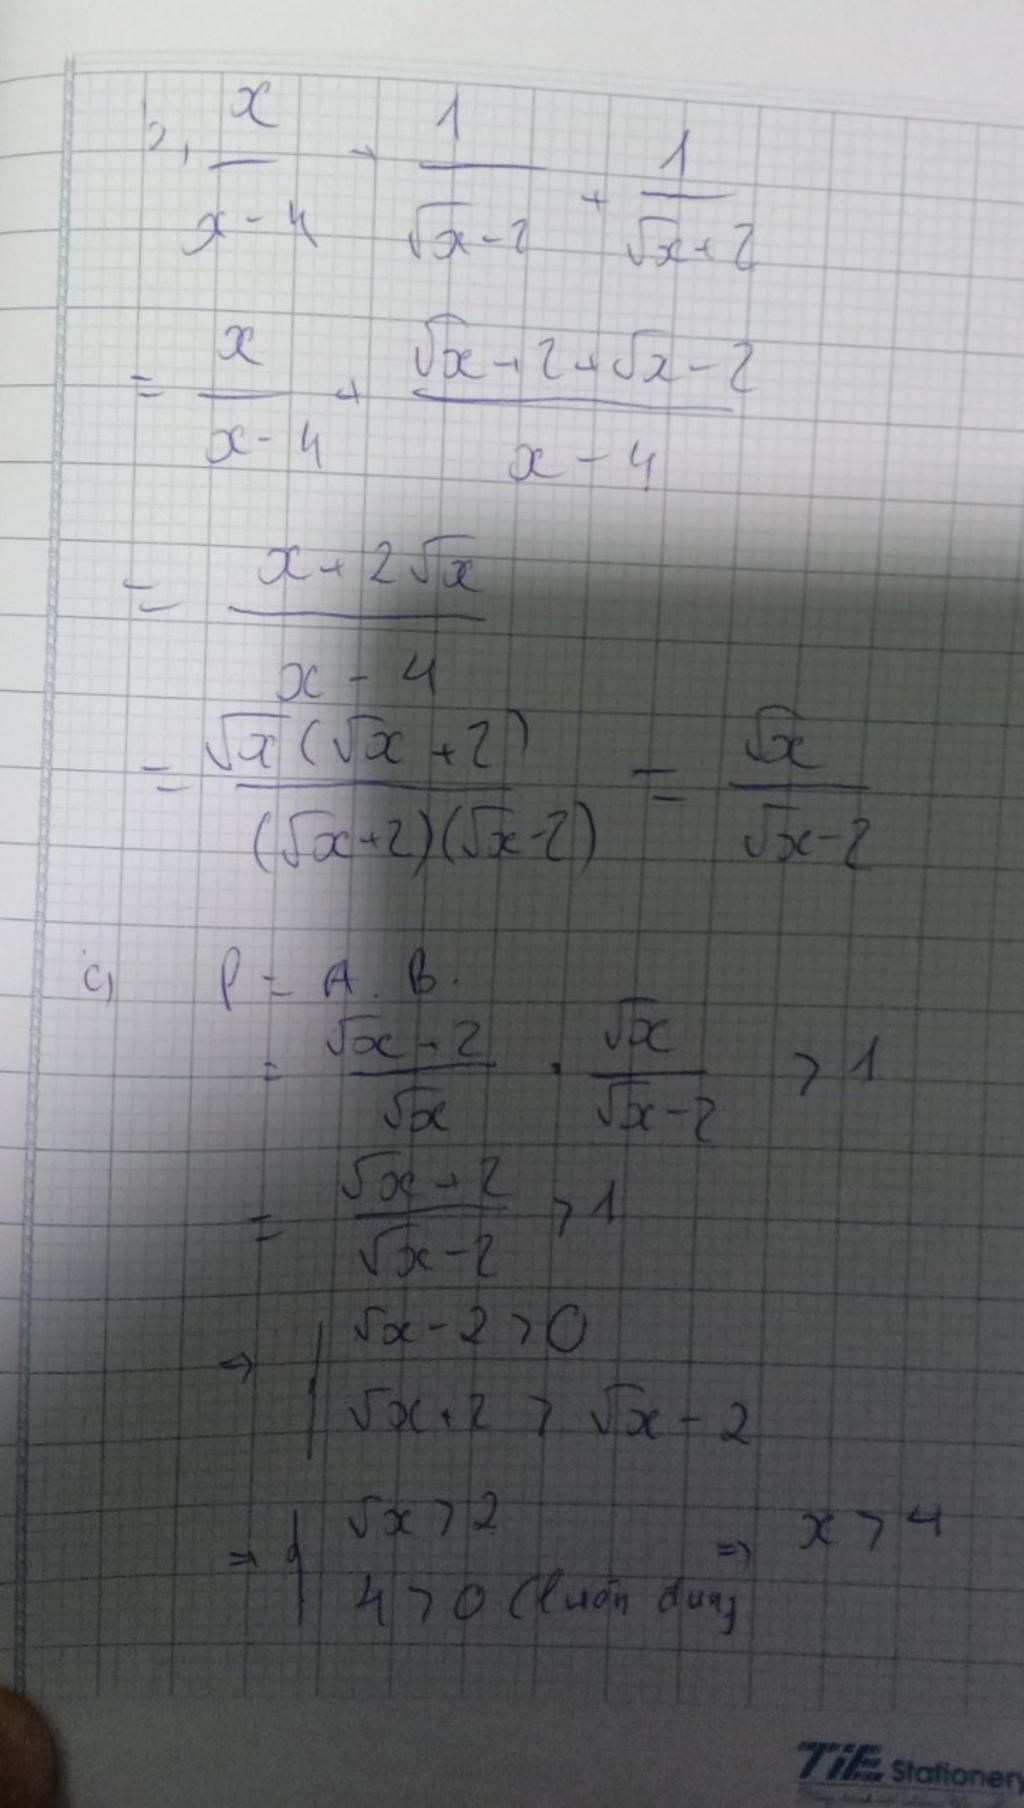 b, x/(x-4) + 1/(√x-2) + 1/(√x+2)
= x/(x-4) + (√x+2+√x-2)/(x-4)
= (x+2√x)/(x-4)
= √x(√x+2)/((√x+2)(√x-2)) = √x/(√x-2)
c) P = A . B.
= (√x+2)/√x . √x/(√x-2) > 1
= (√x+2)/(√x-2) > 1
⇒ { √x-2 > 0
√x+2 > √x-2
⇒ { √x > 2 ⇒ x > 4
4 > 0 (luôn đúng
TiE Stationery